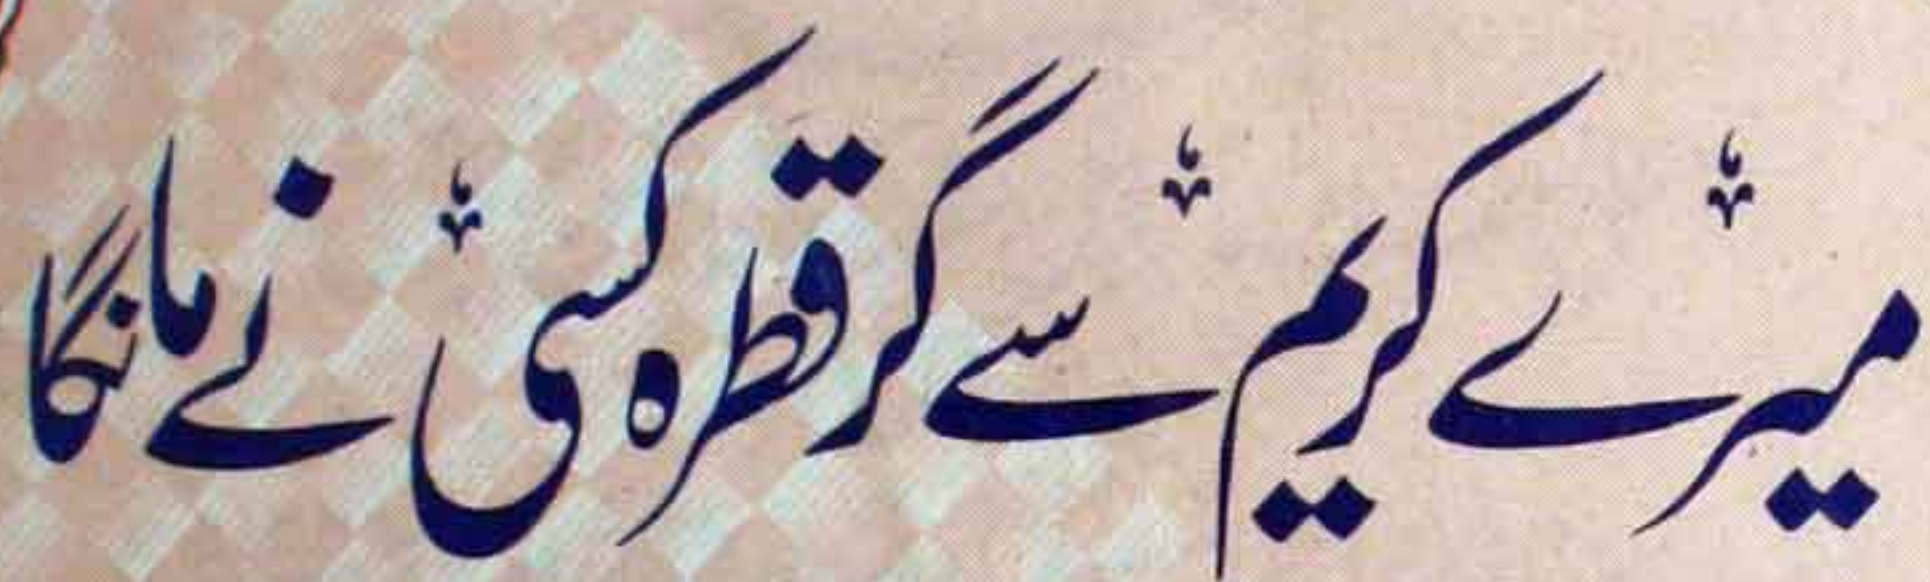 میرے کریم سے گر قطرہ کسی نے مانگا